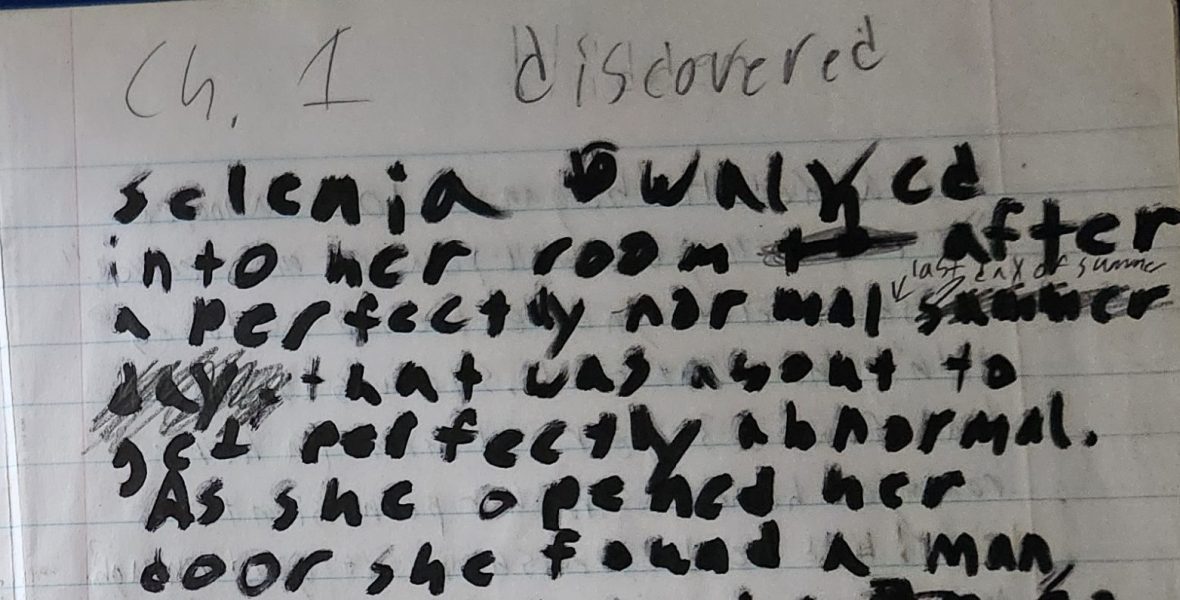 Ch. 1 discovered
selenia walked
into her room after
last day of summer
a perfectly normal summer
day, that was about to
get perfectly abnormal.
As she opened her
door she found a man,